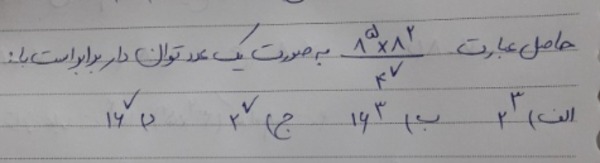 حاصل عبارت ۸^۵×۸^۲ / ۴^۷ به صورت یک عدد توان دار برابر است با:
الف) ۲^۳ ب) ۱۶^۳ ج) ۲^۷ د) ۱۶^۷